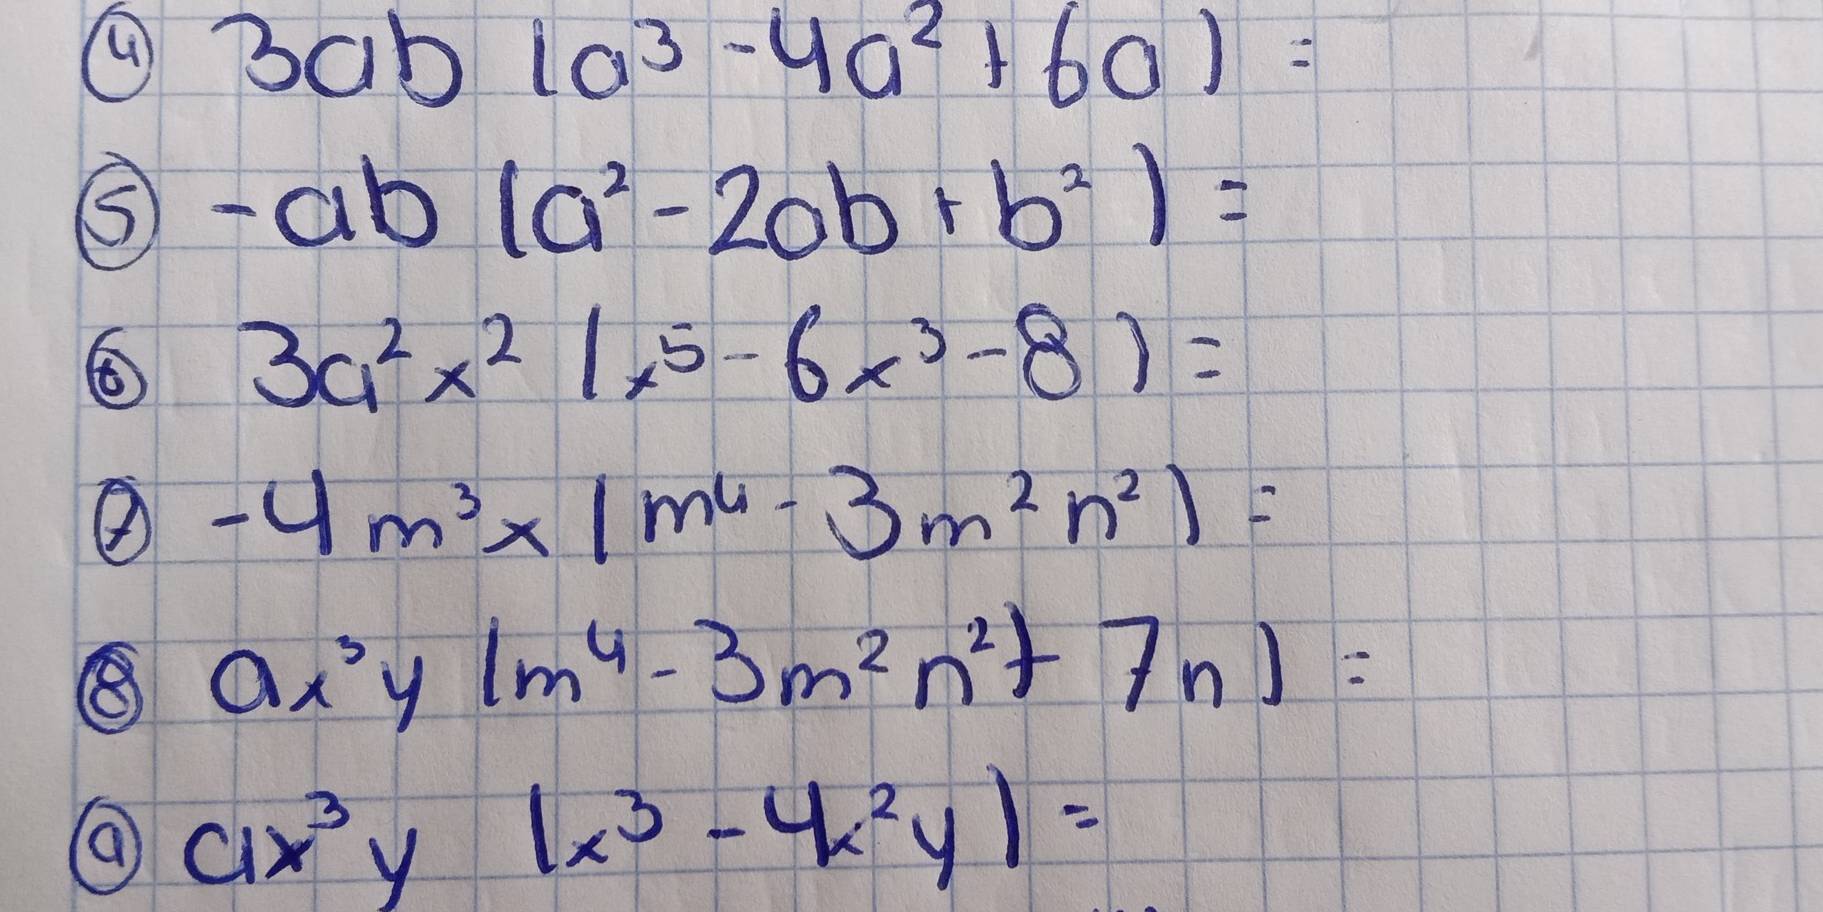 ④ 3ab (a³ -4a² + 6a) =
⑤ -ab (a² - 2ab + b²) =
⑥ 3a²x² (x⁵ - 6x³ - 8) =
⑦ -4m³x (m⁴ - 3m²n²) =
⑧ ax³y (m⁴ - 3m²n² + 7n) =
⑨ ax³y (x³ - 4x²y) =